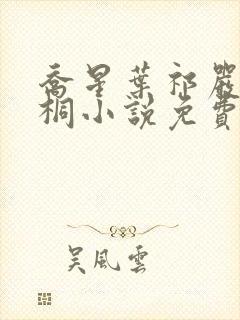 喬星葉祁嚴
桐小說免費
吴風雲